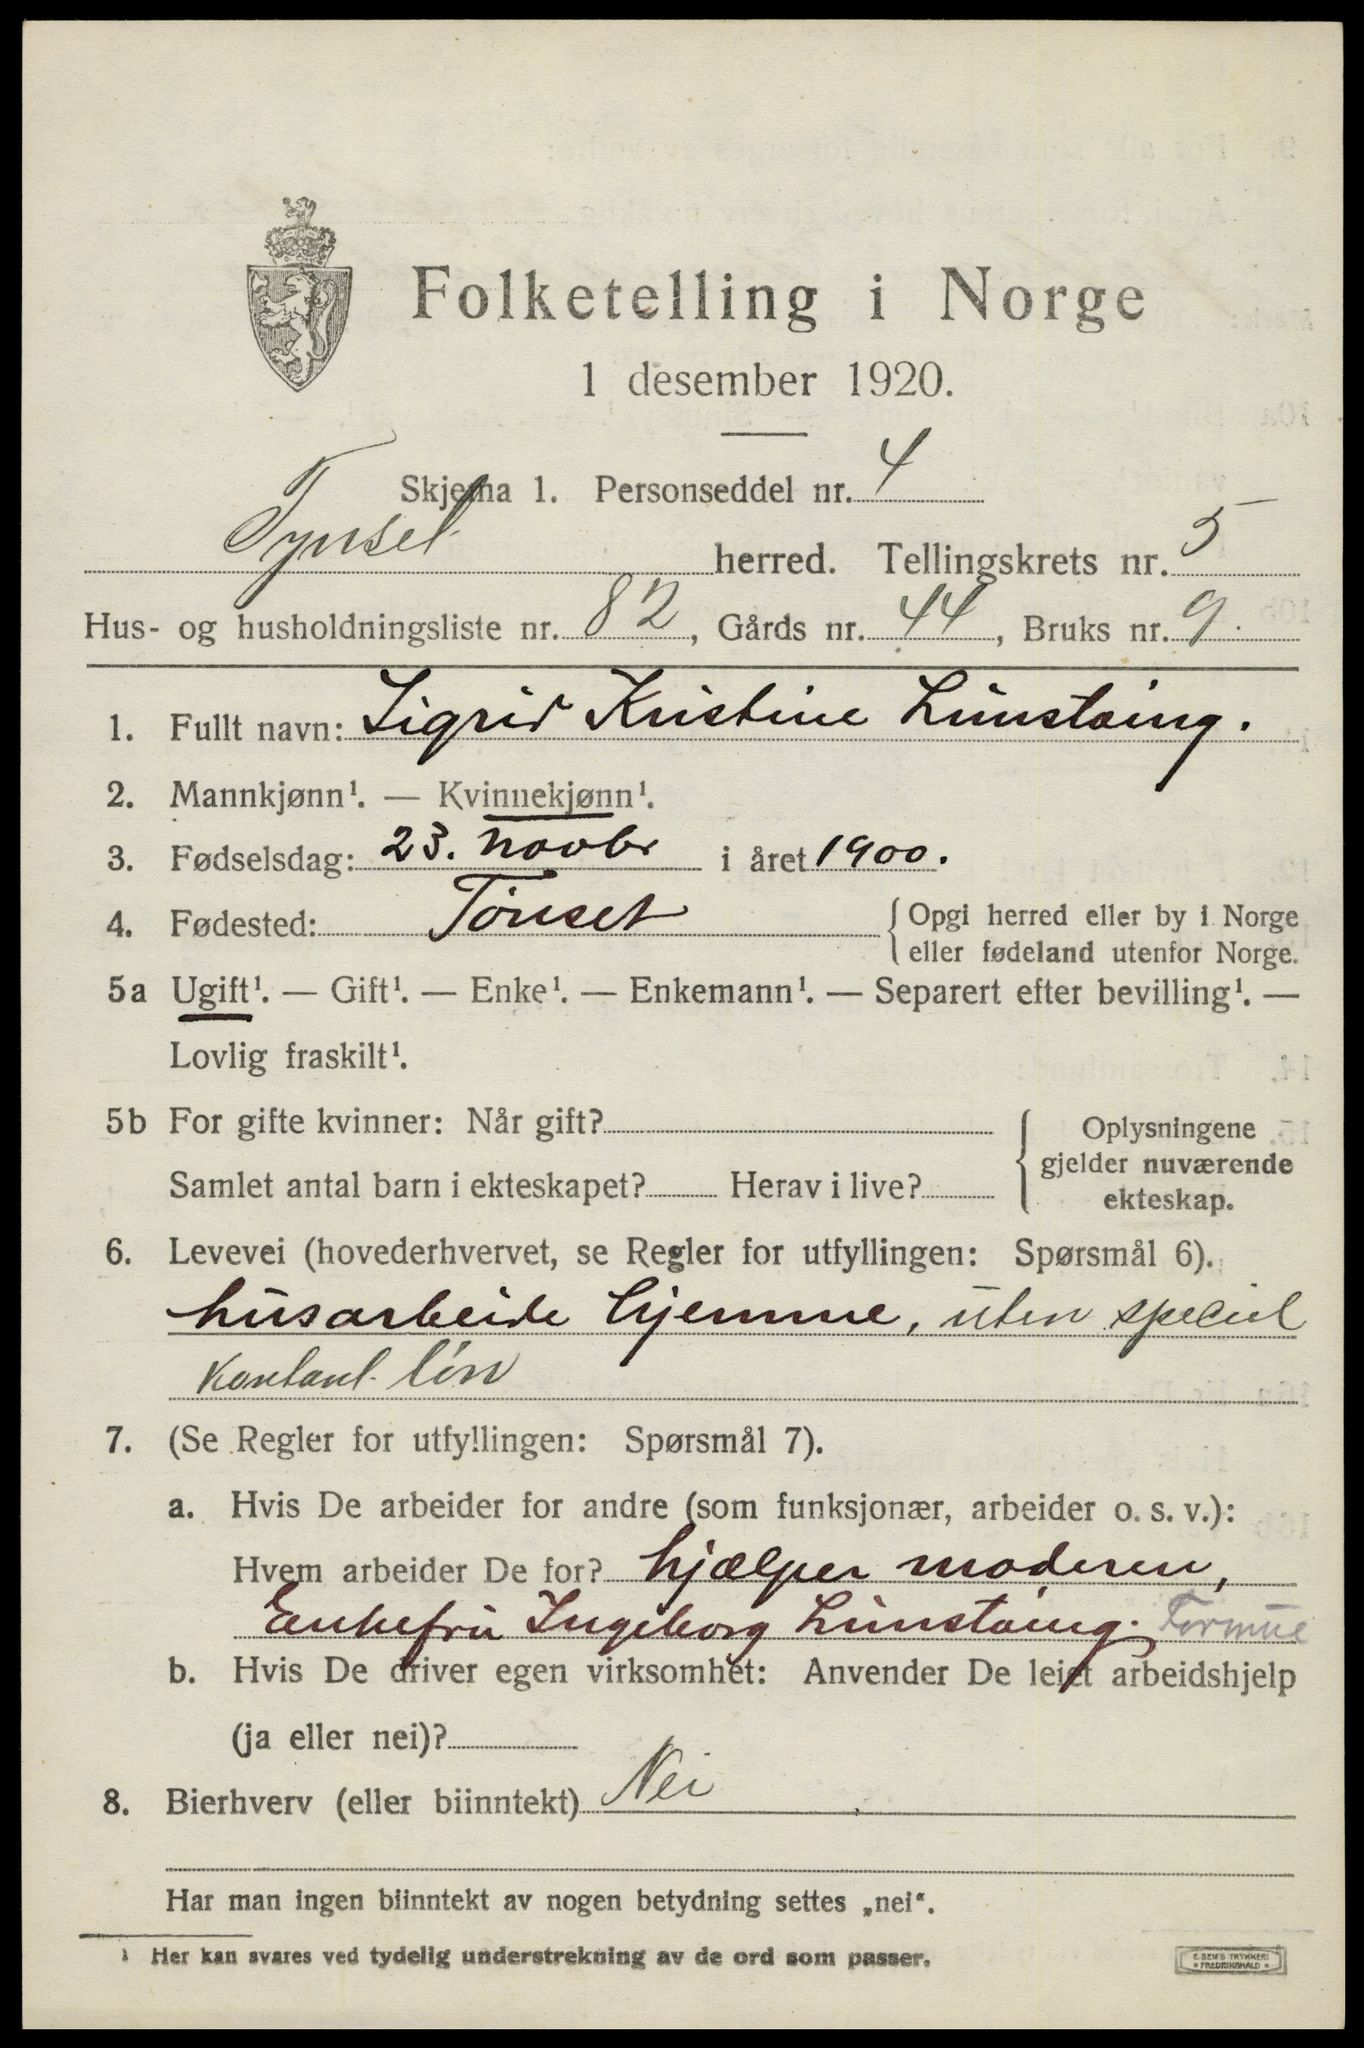 Folketelling i Norge
1 desember 1920.
Skjema 1. Personseddel nr. 4
Tynset herred. Tellingskrets nr. 5
Hus- og husholdningsliste nr. 82, Gårds nr. 44, Bruks nr. 9.
1. Fullt navn: Sigrid Kristine Lunstaing.
2. Mannkjønn¹. — Kvinnekjønn¹.
3. Fødselsdag: 23. novbr i året 1900.
4. Fødested: Tönset { Opgi herred eller by i Norge
eller fødeland utenfor Norge.
5a Ugift¹. — Gift¹. — Enke¹. — Enkemann¹. — Separert efter bevilling¹. —
Lovlig fraskilt¹.
5b For gifte kvinner: Når gift?
Samlet antal barn i ekteskapet? Herav i live?
{ Oplysningene
gjelder nuværende
ekteskap.
6. Levevei (hovederhvervet, se Regler for utfyllingen: Spørsmål 6).
husarbeide hjemme, uten speciel
kontant lön
7. (Se Regler for utfyllingen: Spørsmål 7).
a. Hvis De arbeider for andre (som funksjonær, arbeider o. s. v.):
Hvem arbeider De for? hjælper moderen,
Enkefru Ingeborg Lunstaing. Formue
b. Hvis De driver egen virksomhet: Anvender De leiet arbeidshjelp
(ja eller nei)?
8. Bierhverv (eller biinntekt) Nei
Har man ingen biinntekt av nogen betydning settes „nei“.
¹ Her kan svares ved tydelig understrekning av de ord som passer.
E. SEM'S TRYKKERI
FREDRIKSHALD